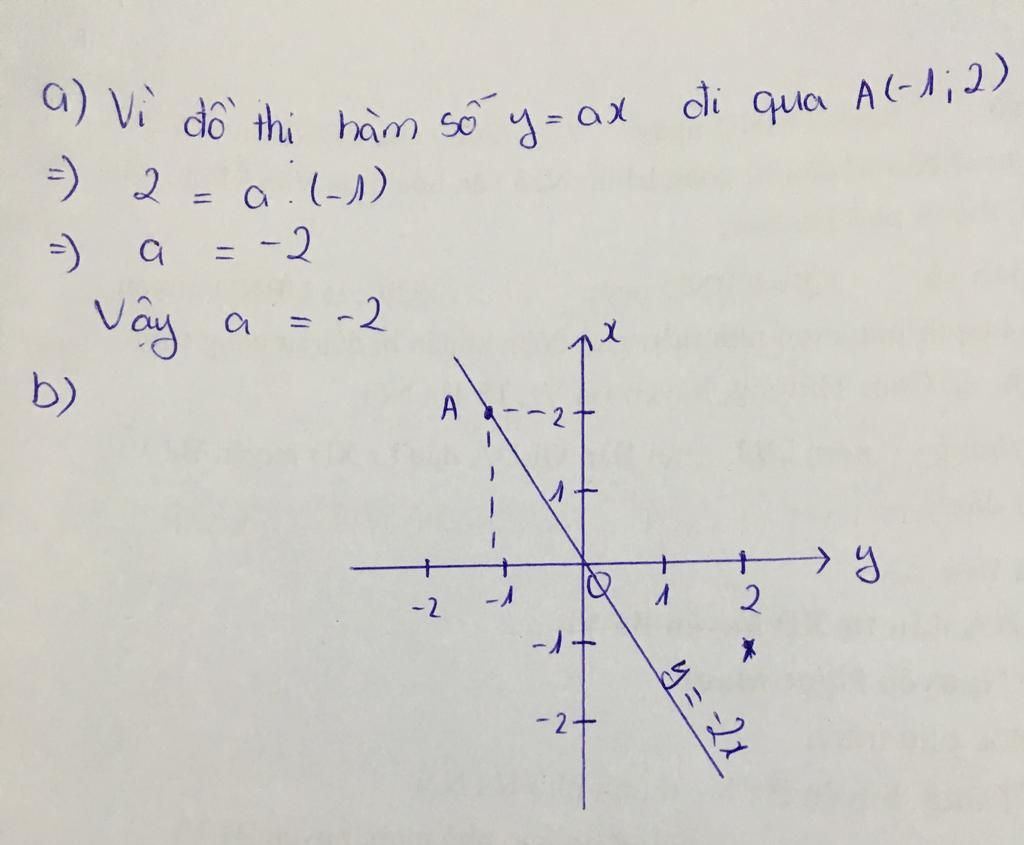 a) Vì đồ thị hàm số y = ax đi qua A(-1; 2)
=) 2 = a . (-1)
=) a = -2
Vậy a = -2
b)
x
A
2
1
y
-2 -1 O 1 2
-1
-2
y = -2x